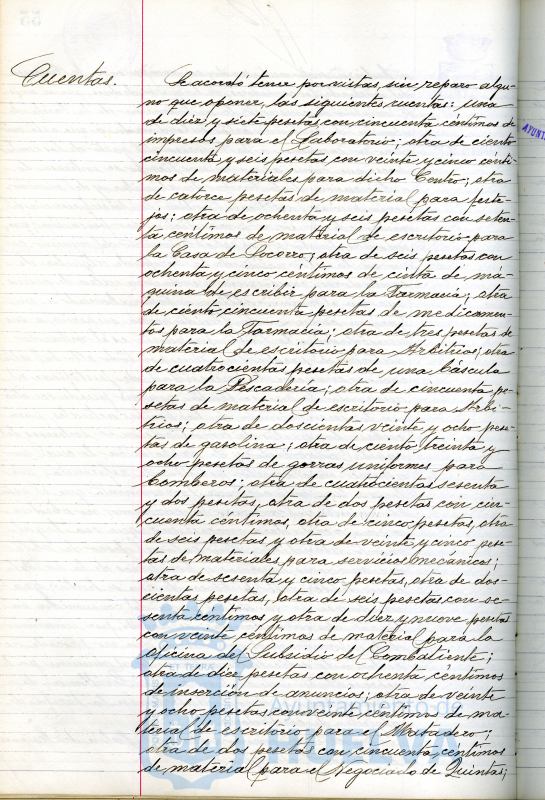 Cuentas.
Se acordó tener por vistas, sin reparo algu-
no que oponer, las siguientes cuentas: una
de diez y siete pesetas con cincuenta céntimos de
impresos para el Laboratorio; otra de ciento
cincuenta y seis pesetas con veinte y cinco cénti-
mos de materiales para dicho Centro; otra
de catorce pesetas de material para feste-
jos; otra de ochenta y seis pesetas con seten-
ta céntimos de material de escritorio para
la Casa de Socorro; otra de seis pesetas con
ochenta y cinco céntimos de cinta de má-
quina de escribir para la Farmacia; otra
de ciento cincuenta pesetas de medicamen-
tos para la Farmacia; otra de tres pesetas de
material de escritorio para Arbitrios; otra
de cuatrocientas pesetas de una báscula
para la Pescadería; otra de cincuenta pe-
setas de material de escritorio para Arbi-
trios; otra de doscientas veinte y ocho pese-
tas de gasolina; otra de ciento treinta y
ocho pesetas de gorras uniformes para
bomberos; otra de cuatrocientas sesenta
y dos pesetas, otra de dos pesetas con cin-
cuenta céntimos, otra de cinco pesetas, otra
de seis pesetas y otra de veinte y cinco pese-
tas de materiales para servicios mecánicos;
otra de sesenta y cinco pesetas, otra de dos-
cientas pesetas, otra de seis pesetas con se-
senta céntimos y otra de diez y nueve pesetas
con veinte céntimos de material para la
oficina del Subsidio de Combatiente;
otra de diez pesetas con ochenta céntimos
de inserción de anuncios; otra de veinte
y ocho pesetas con veinte céntimos de ma-
terial de escritorio para el Matadero;
otra de dos pesetas con cincuenta céntimos
de material para el Negociado de Quintas;
Ayuntamiento de
HUELVA
AYUNTA
55